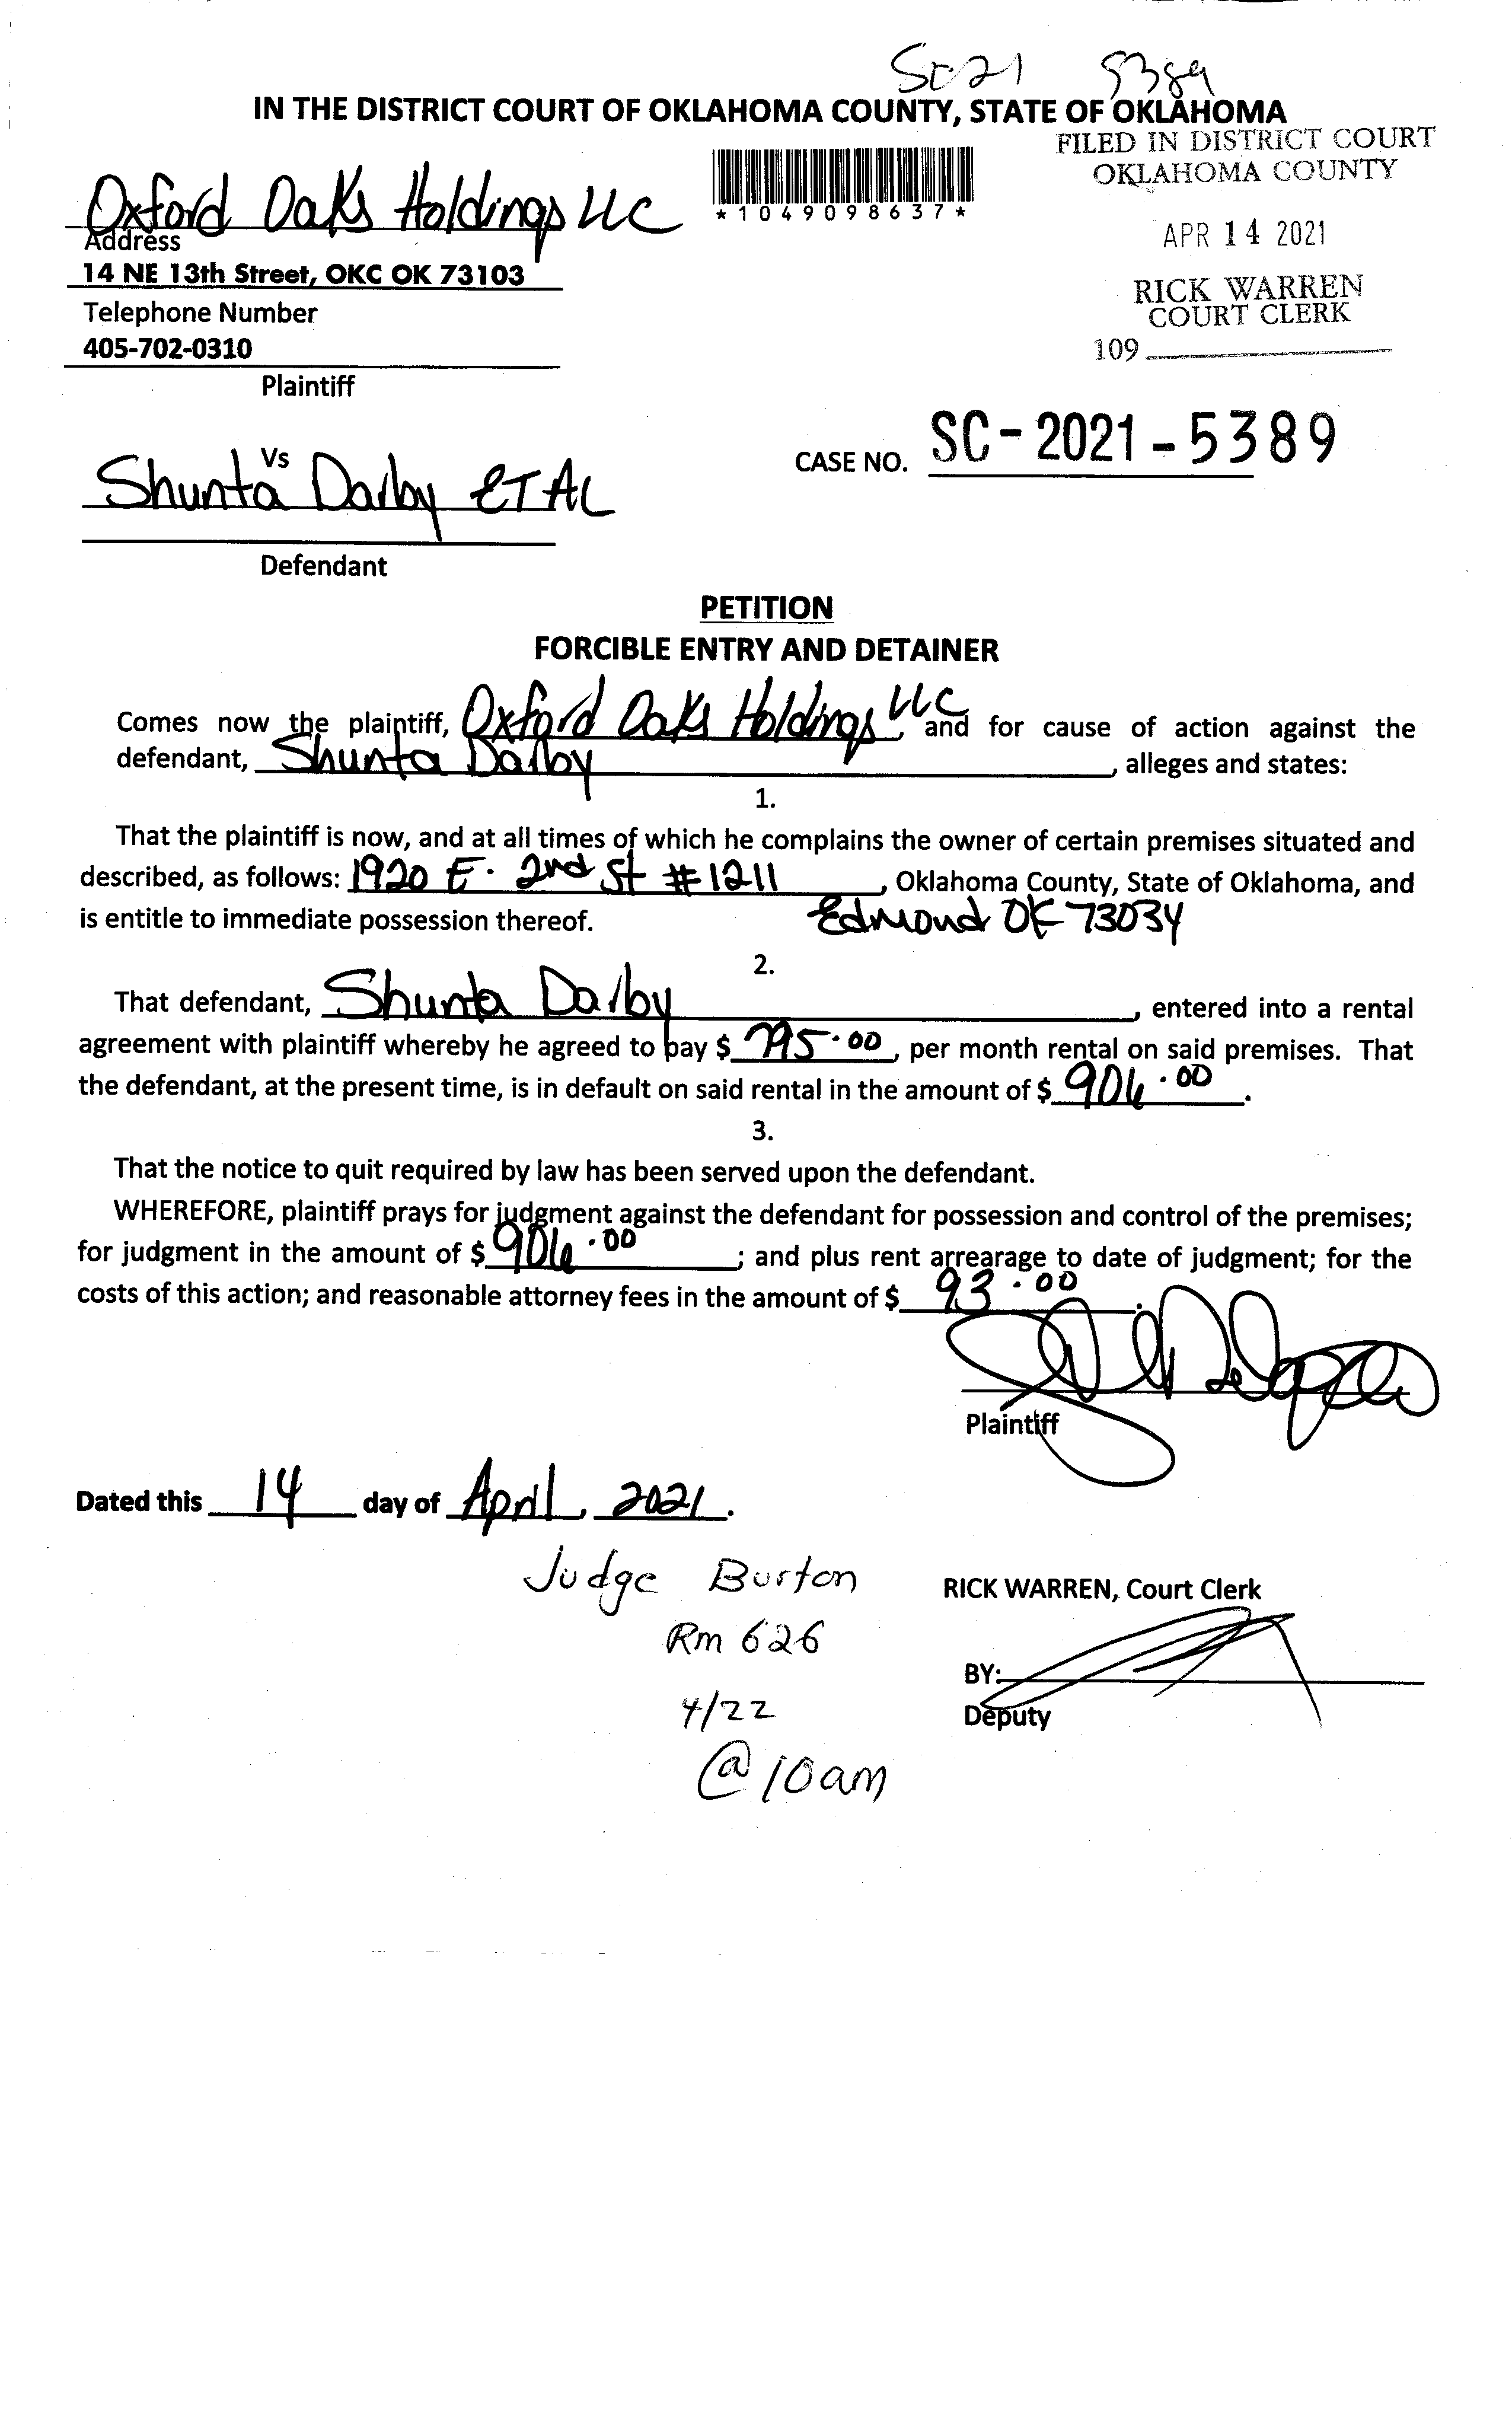 SC21 5389
IN THE DISTRICT COURT OF OKLAHOMA COUNTY, STATE OF OKLAHOMA
FILED IN DISTRICT COURT
OKLAHOMA COUNTY
Oxford Oaks Holdings LLC
*1049098637*
APR 14 2021
Address
14 NE 13th Street, OKC OK 73103
RICK WARREN
COURT CLERK
Telephone Number
405-702-0310
109
Plaintiff
SC-2021-5389
CASE NO.
Vs
Shunta Darby ET AL
Defendant
PETITION
FORCIBLE ENTRY AND DETAINER
Comes now the plaintiff, Oxford Oaks Holdings LLC, and for cause of action against the
defendant, Shunta Darby, alleges and states:
1.
That the plaintiff is now, and at all times of which he complains the owner of certain premises situated and
described, as follows: 1920 E. 2nd St #1211, Oklahoma County, State of Oklahoma, and
is entitle to immediate possession thereof. Edmond OK 73034
2.
That defendant, Shunta Darby, entered into a rental
agreement with plaintiff whereby he agreed to pay $ 795.00, per month rental on said premises. That
the defendant, at the present time, is in default on said rental in the amount of $ 906.00.
3.
That the notice to quit required by law has been served upon the defendant.
WHEREFORE, plaintiff prays for judgment against the defendant for possession and control of the premises;
for judgment in the amount of $ 906.00; and plus rent arrearage to date of judgment; for the
costs of this action; and reasonable attorney fees in the amount of $ 93.00.
Plaintiff
Dated this 14 day of April, 2021.
Judge Burton
RICK WARREN, Court Clerk
Rm 626
BY:
4/22
Deputy
@ 10am